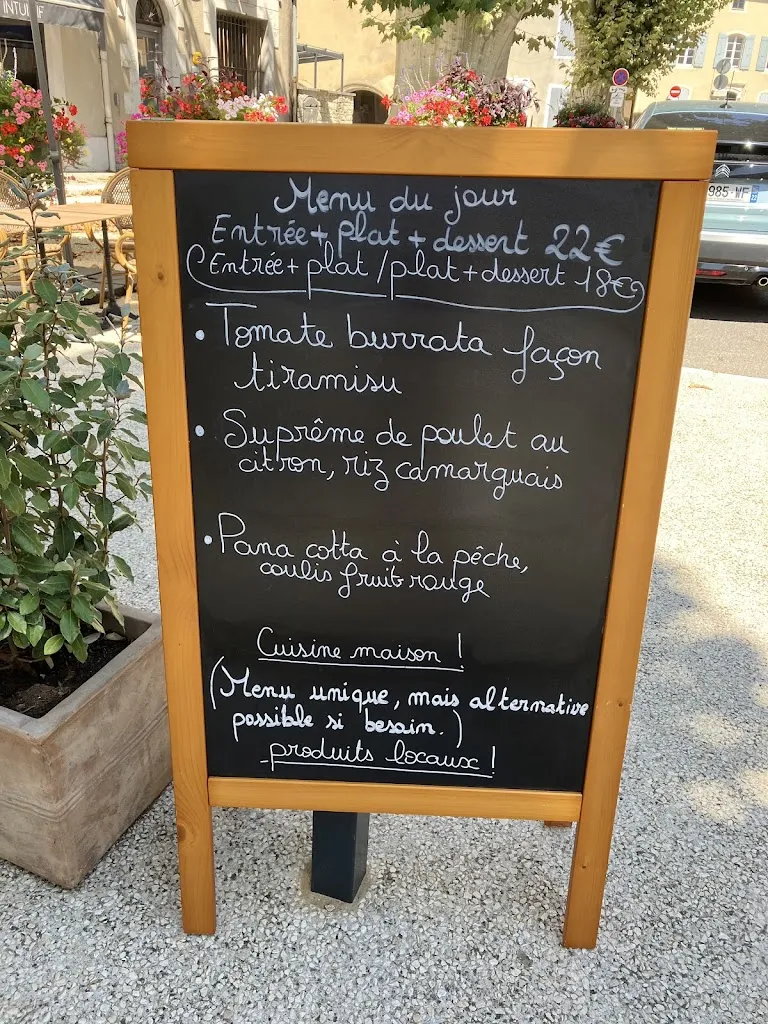 INTUITIF
Menu du jour
Entrée + plat + dessert 22€
Entrée + plat / plat + dessert 18€
• Tomate burrata façon
tiramisu
• Suprême de poulet au
citron, riz camarguais
• Pana cotta à la pêche,
coulis fruit rouge
Cuisine maison !
(Menu unique, mais alternative
possible si besoin.)
produits locaux !
985-WF